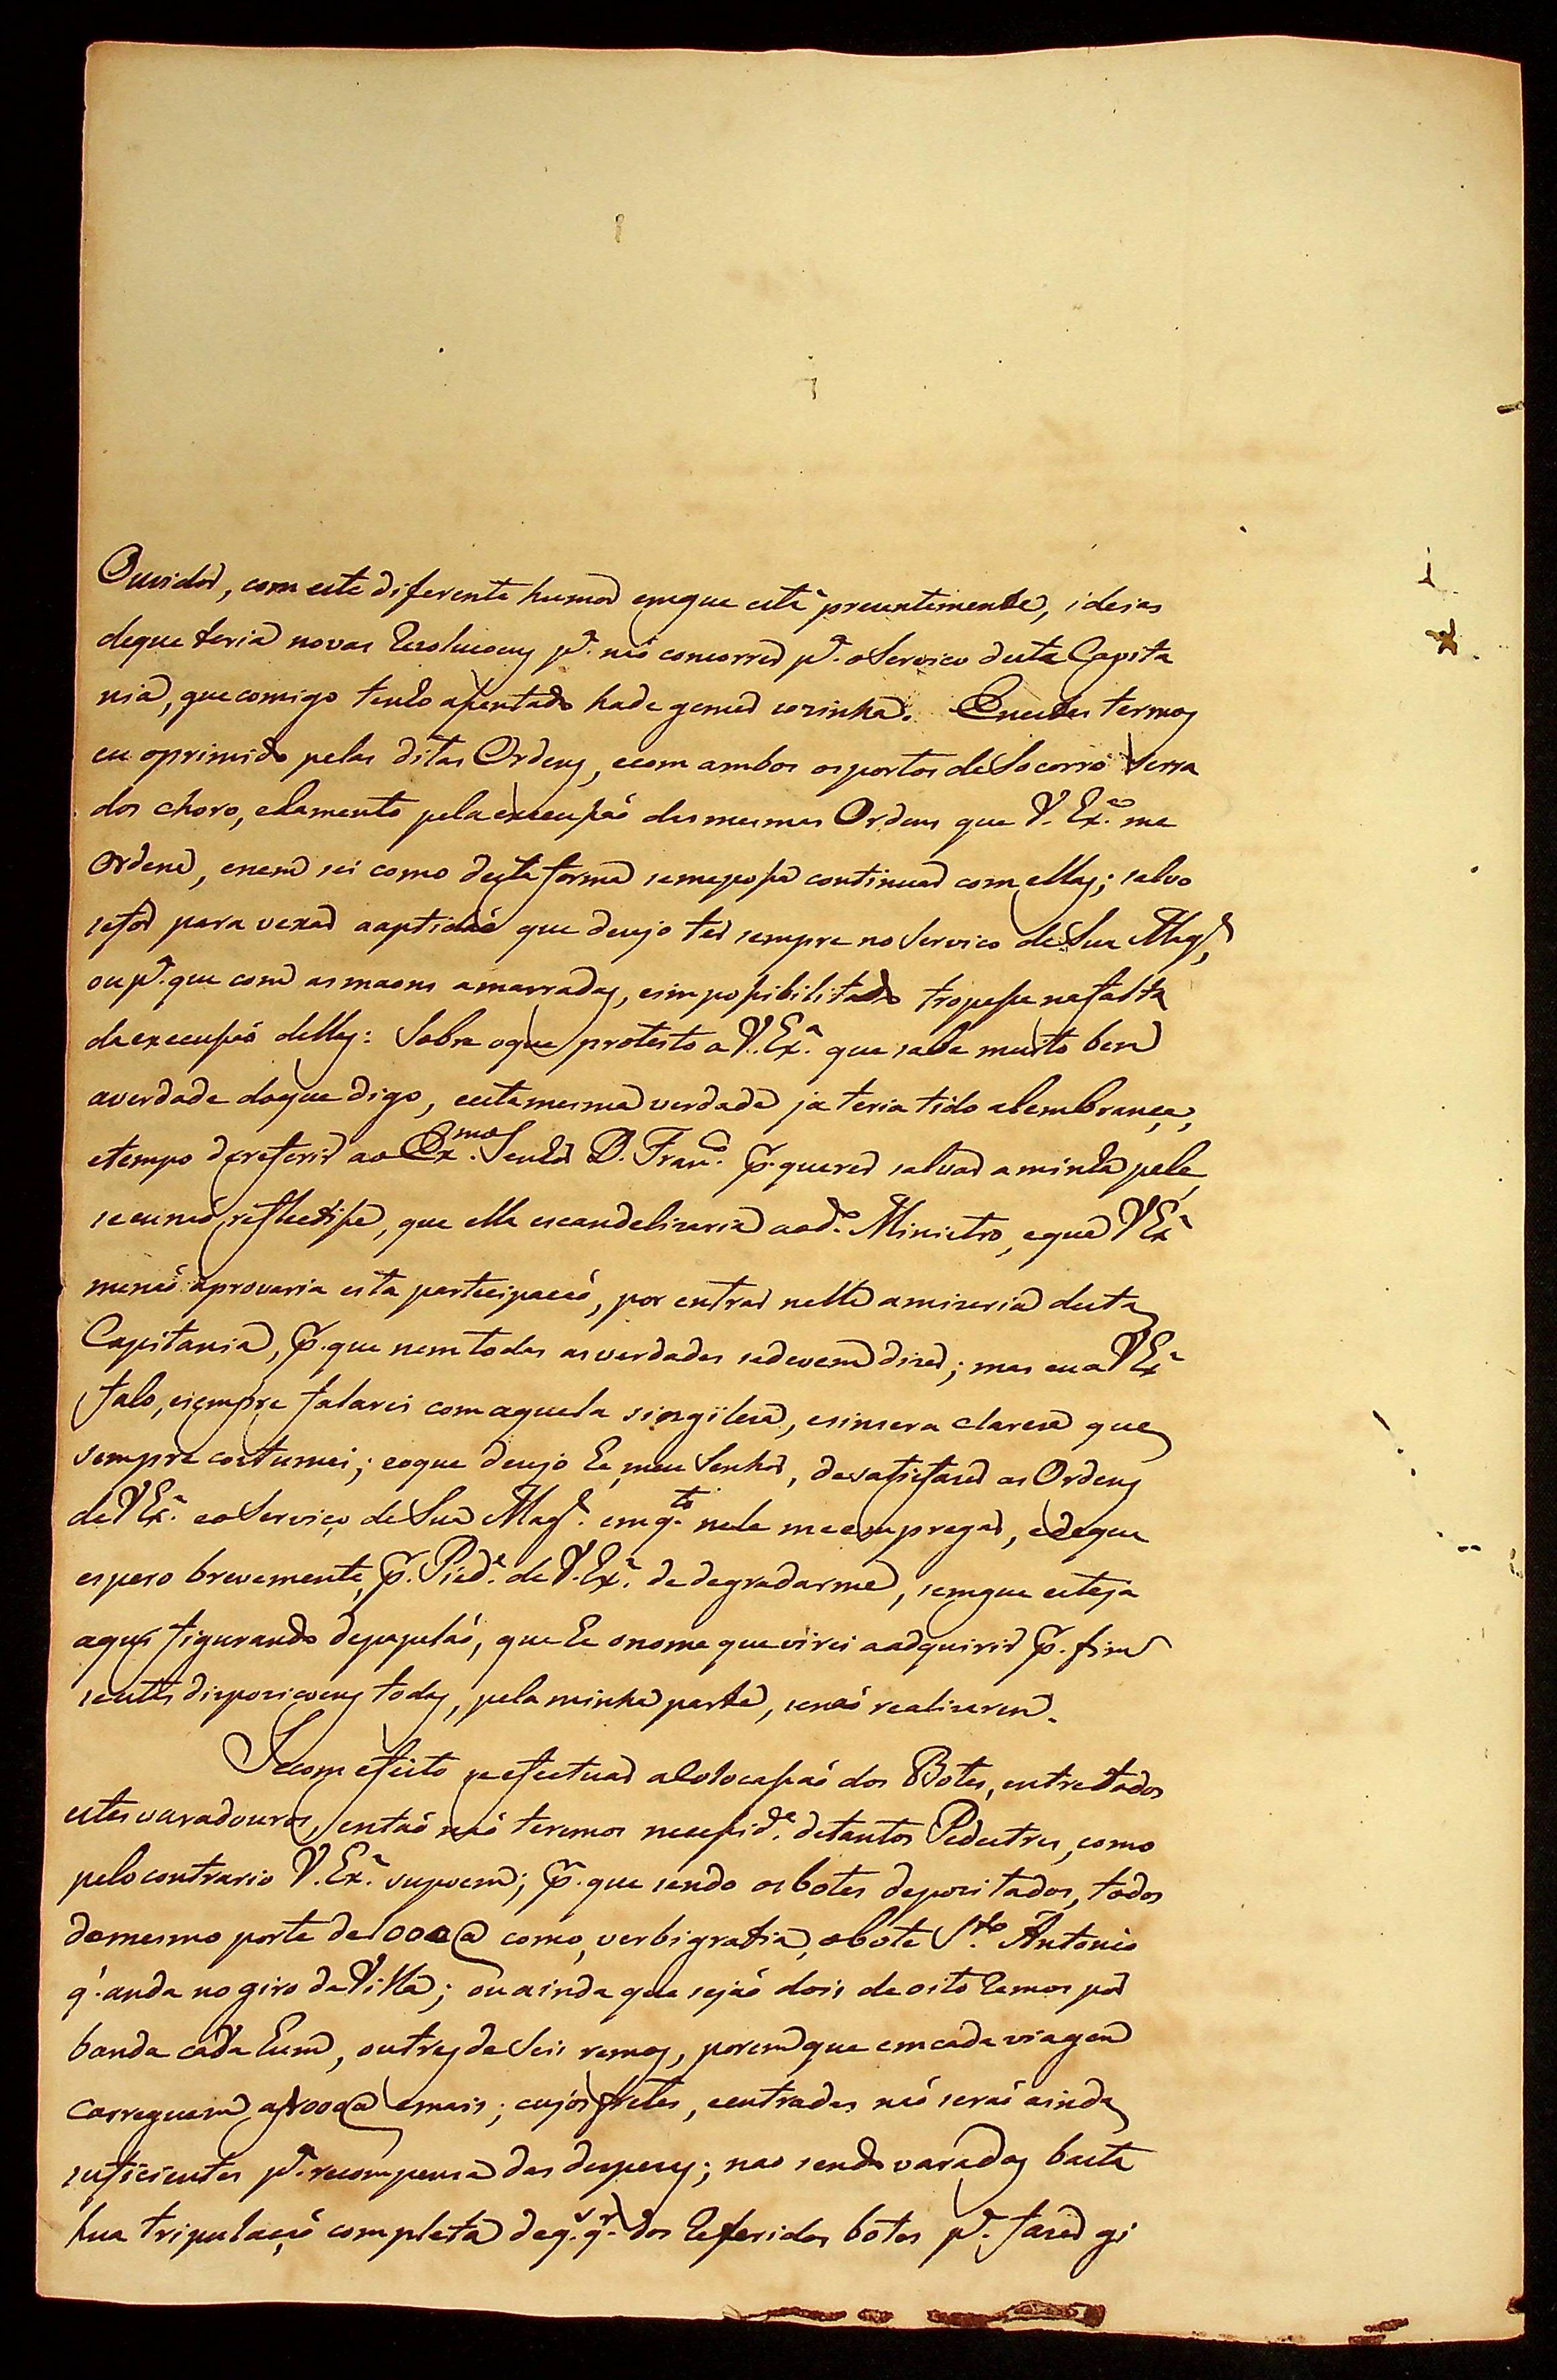 Ouvidor, com este diferente humor emque está prezentemente, ideias
deque teria novas Rezolucoens pᵃ. não concorrer pᵃ. o Servico desta Capita
nia, que comigo tendo aſentado hade gemer sozinha. Enestes termos
eu oprimido pelas ditas Ordens, ecom ambos os portos de Socorro Serra
dos choro, elamento pela execuſaó das mesmas Ordens que V. Exᵃ. me
Ordena, enem sei como desta forma semepoſa continuar com ellas; salvo
sefor para vexar aaptidaó que dezejo ter sempre no Servico de Sua Magᵉ,
ou pᵃ. que com asmaons amarradas, eimpoſibilitado tropeſe nafalta
da execuſaó dellas: Sobre oque protesto a V. Exᵃ. que sabe muito bem
averdade doque digo, eesta mesma verdade ja teria tido alembrança,
etempo dereferir ao Exᵐᵒ. Senhor D. Franᶜᵒ. p. querer salvar aminha pele,
se eu naó reflectiſe, que ella escandelizaria aodᵒ. Ministro, eque VExᵃ
menaó aprovaria esta participacaó, por entrar nella amizeria desta
Capitania, p. que nem todas asverdades sedevem dizer; mas eu a VExᵃ
falo, esempre falarei com aquela singileza, esinsera clareza que
sempre costumei; eoque dezejo he, meu Senhor, desatisfazer as Ordens
de VExᵃ. eo Serviço de Sua Magᵉ. em qᵗᵒ. nele me empregar, edeque
espero brevemente, p. Piedᵉ. de V. Exᵃ. de degradarme, semque esteja
aqui figurando depapelaó, que he onome que virei aadquirir p. fim
seestas dispozicoens todas, pela minha parte, senaó realizarem.
Secom efeito se efectuar aColocaſaó dos Botes, entretodos
estes varadouros, entaó naó teremos neceſidᵉ. detantos Pedestres, como
pelo contrario V. Exᵃ. supoem; p. que sendo os botes depozitados, todos
domesmo porte de 1000@ como, verbigratia, obote Sᵗᵒ. Antonio
q. anda no giro da Villa; ou ainda que sejaó dois de oito Remos por
banda cada hum, outros de Seis remos, porem que emcada viagem
carreguem as 1000@ emais; cujos fretes, eentradas naó seraó ainda
suficientes pᵃ. recompensa das despezas; nao sendo varados basta
hua tripulaçaó completa de qᵃˡ. qʳ. dos Referidos botes pᵃ. fazer gi